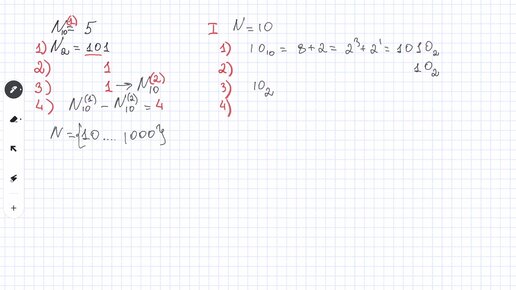 N₁₀⁽¹⁾ = 5
1) N₂ = 101
2) 1
3) 1 → N₁₀⁽²⁾
4) N₁₀⁽¹⁾ − N₁₀⁽²⁾ = 4
N = {10 .... 1000}
I N = 10
1) 10₁₀ = 8 + 2 = 2³ + 2¹ = 1010₂
2) 10₂
3) 10₂
4)